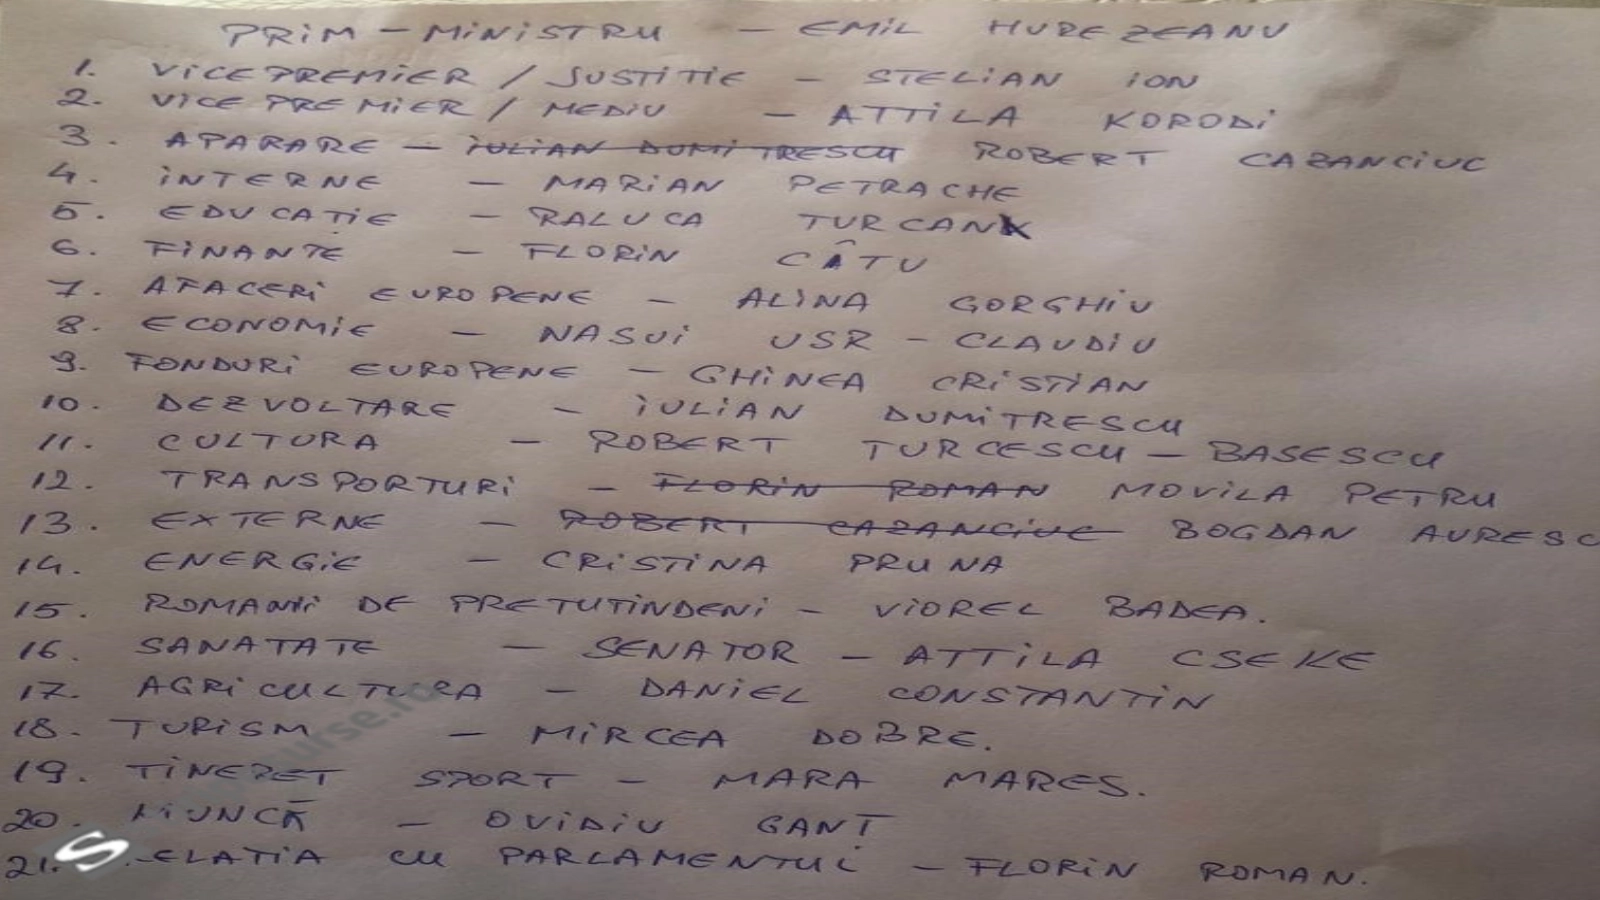 PRIM-MINISTRU - EMIL HUREZEANU
1. VICEPREMIER / JUSTITIE - STELIAN ION
2. VICEPREMIER / MEDIU - ATTILA KORODI
3. APARARE - IULIAN DUMITRESCU ROBERT CAZANCIUC
4. INTERNE - MARIAN PETRACHE
5. EDUCAȚIE - RALUCA TURCAN
6. FINANȚE - FLORIN CÂTU
7. AFACERI EUROPENE - ALINA GORGHIU
8. ECONOMIE - NASUI USR - CLAUDIU
9. FONDURI EUROPENE - GHINEA CRISTIAN
10. DEZVOLTARE - IULIAN DUMITRESCU
11. CULTURA - ROBERT TURCESCU - BASESCU
12. TRANSPORTURI - FLORIN ROMAN MOVILA PETRU
13. EXTERNE - ROBERT CAZANCIUC BOGDAN AURESC
14. ENERGIE - CRISTINA PRUNA
15. ROMANII DE PRETUTINDENI - VIOREL BADEA.
16. SANATATE - SENATOR - ATTILA CSEKE
17. AGRICULTURA - DANIEL CONSTANTIN
18. TURISM - MIRCEA DOBRE.
19. TINERET SPORT - MARA MARES.
20. MUNCĂ - OVIDIU GANȚ
21. ELATIA CU PARLAMENTUL - FLORIN ROMAN.